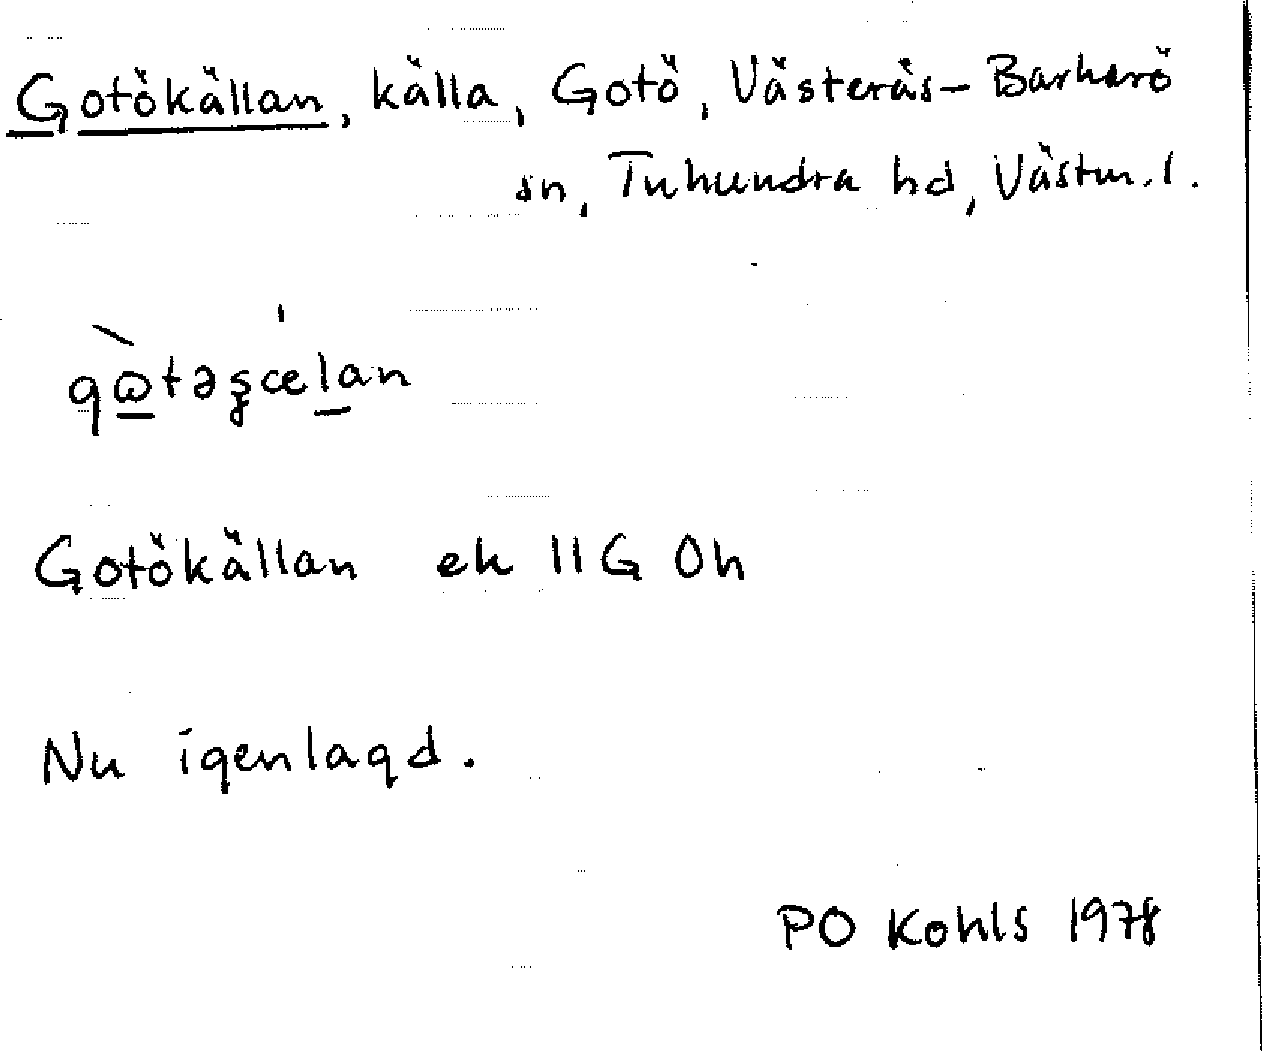 Gotökällan, källa, Gotö, Västerås-Barkarö
sn, Tuhundra hd, Västm. l.
gɷ̀təʂælan
Gotökällan ek 11G 0h
Nu igenlagd.
PO Kohls 1978